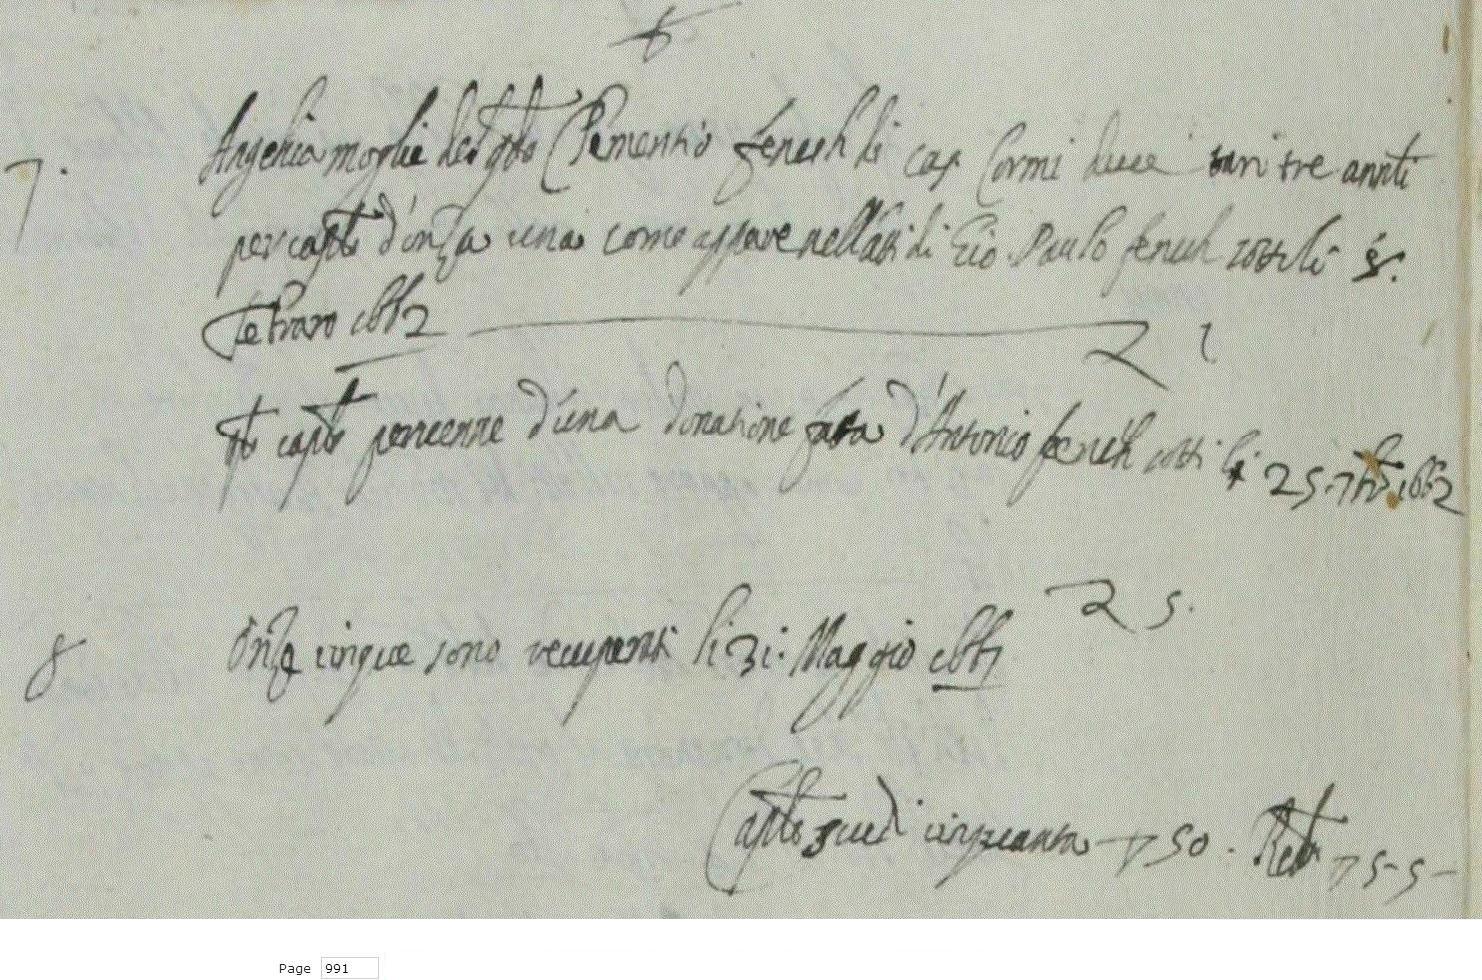 7. Angelica moglie del qdo Clementio fenech di cas Cormi deve tari tre annti
per caple d'onza una come appare nell'atti di Gio Paulo fenech sotto li 8.
febraro 1662 1
qto caple perviene d'una donatione fatta d'Antonio fenech sotto li 25 7bre 1662
5.
8 Onze cinque sono recuperati li 31: Maggio 1661
Caple scudi cinquanta 50. 5-5-
Page 991